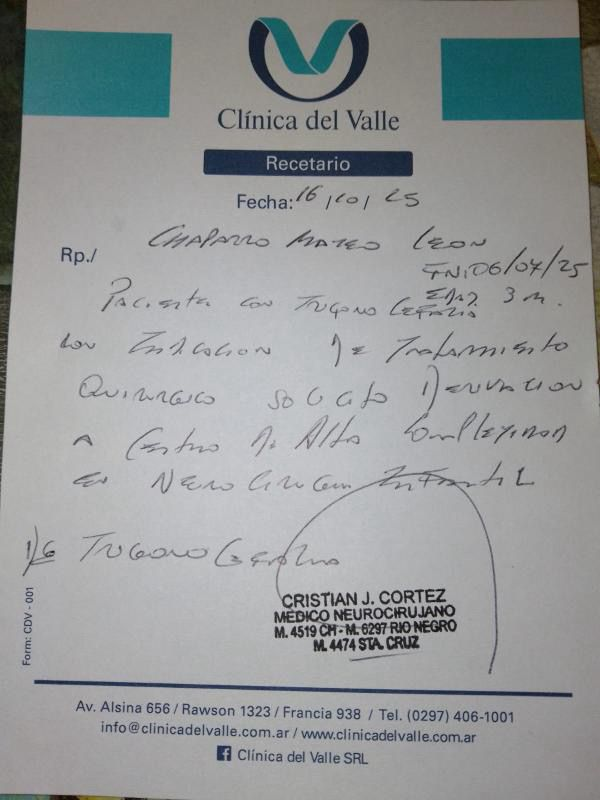 Clínica del Valle
Recetario
Fecha: 16/10/25
Rp./ CHAPARRO MATEO LEON
FN:06/07/25
EDAD 3 m.
PACIENTE CON TRIGONO CEFALIA
CON INDICACION DE TRATAMIENTO
QUIRURGICO SOLICITO DERIVACION
A CENTRO DE ALTA COMPLEJIDAD
EN NEURO CIRUGIA INFANTIL
DG TRIGONO CEFALIA
CRISTIAN J. CORTEZ
MÉDICO NEUROCIRUJANO
M. 4519 CH - M. 6297 RIO NEGRO
M. 4474 STA. CRUZ
Form: CDV - 001
Av. Alsina 656 / Rawson 1323 / Francia 938 / Tel. (0297) 406-1001
info@clinicadelvalle.com.ar / www.clinicadelvalle.com.ar
Clínica del Valle SRL